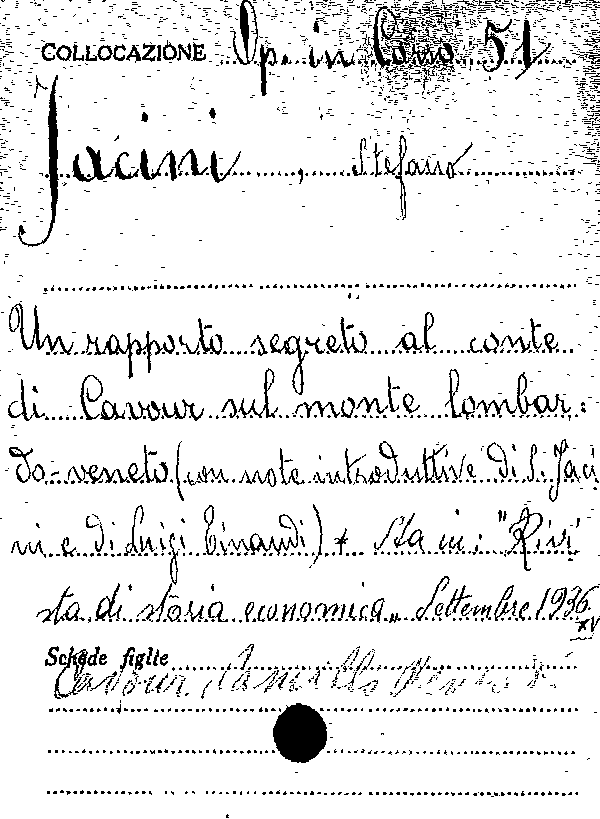 COLLOCAZIONE Op. in Cons 51
Jacini, Stefano
Un rapporto segreto al conte
di Cavour sul monte lombar:
do-veneto (con note introduttive di S. Jaci
ni e di Luigi Einaudi) + Sta in: "Rivi
sta di storia economica„ Settembre 1936
XV
Schede figlie
Cavour, Camillo Benso di